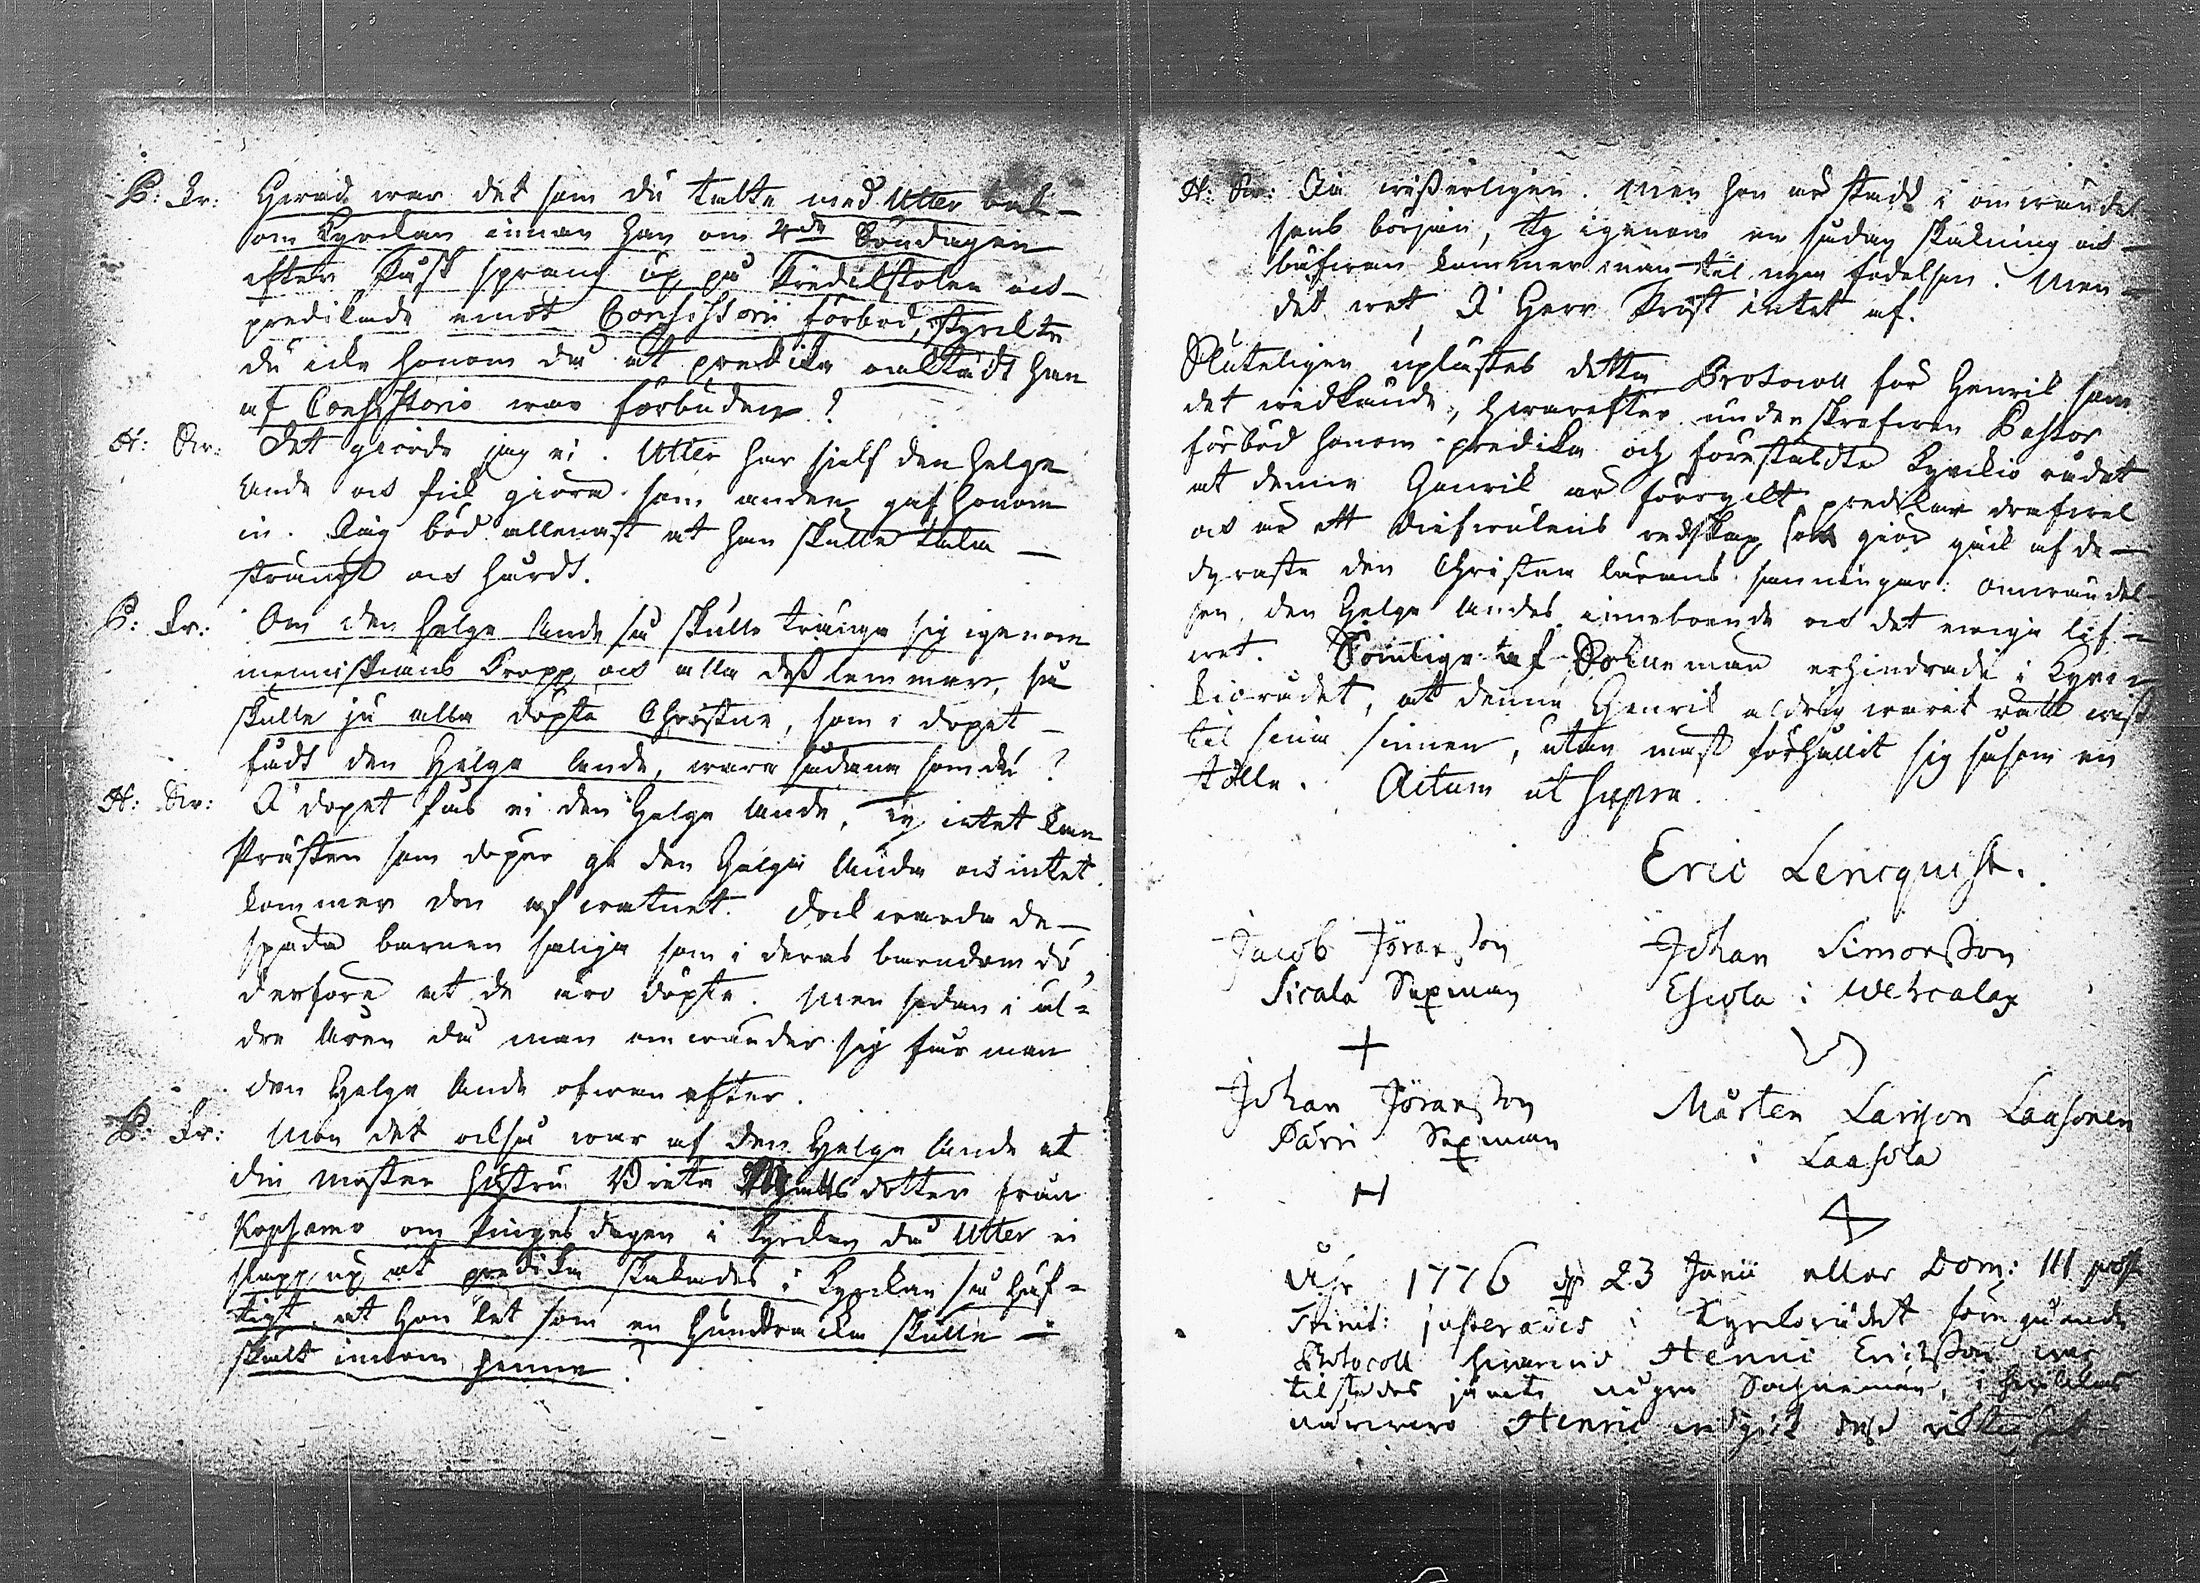 P: Fr: Hwad war det som du talte med Utter bak-
om Kyrckan innan han om 4de Söndagen
efter Påsk sprang up på Predikstolen och
predikade emot Consistorii förbud, styrckte
du icke honom då at predika oaktadt han
af Consistorio war förbuden?
H: Sv: Det giorde jag ei. Utter har sielf den helge
Ande och fick giöra som anden gaf honom
in. Jag bad allenast at han skulle tala
strängt och hårdt.
P: Fr: Om den helge Ande så skulle tränga sig igenom
menniskians Kropp och alla dess lemmar, så
skulle ju alla döpta Christne, som i dopet
fådt den Helge Ande, wara sådana som du?
H: Sv: I dopet fås ei den Helge Ande, ty intet kan
Prästen som döper ge den Helge Anda och intet
kommer den af watnet. Dock warda de
späda barnen salige som i deras barndom dö,
derföre at de äro döpte. Men sedan i äl-
dre Åren då man omwänder sig får man
den Helge Ande ofwan efter.
P: Fr: Mon det också war af den Helge Ande at
din moster hustru Brita Mattsdotter från
Kopsamo om Pingesdagen i Kyrckan då Utter ei
slapp up at predika skakades i Kyrckan så häf-
tigt, at hon let som en hund skulle
skält innom henne?
H: Sv: Ja wisserligen. Men hon är stadd i omwändel-
sens början, ty igenom en sådan skakning och
bäfwan kommer man til nya födelsen. Men
det wet I Herr Prost intet af.
Sluteligen uplästes detta Protocoll för Henrik som
det widkände, hwarefter underskrefwen Pastor
förböd honom predika och förestälde Kyrckio rådet
at denne Henrik är förryckt predikar drafwel
och är ett diefwulens redskap som giör gäck af de
dyraste den Christna lärans sanningar: omwändel-
sen, den Helge Andes inneboende och det ewiga lif-
wet. Somlige af Sokneman erhindrade i Kyrc-
kiorådet, at denne Henrik aldrig warit rätt wiss
til sina sinnen, utan mäst förhållit sig såsom en
tolle. Actum ut supra.
Eric Lencquist.
Jacob Jöransson
Sicala Sexman
Johan Simonsson
Eskola i Wehcalax
Johan Jöransson
Pärri Sexman
Mårten Larsson Laasonen
i Laasola
Åhr 1776 d. 23 Junii eller Dom: III post
Trinit: justerades i Kyrkorådet föregående
Protocoll hwarwid Henric Ericsson war
tilstädes jämte någre Sochnemän, i hwilkas
närwaro Henric widgick dess riktighet